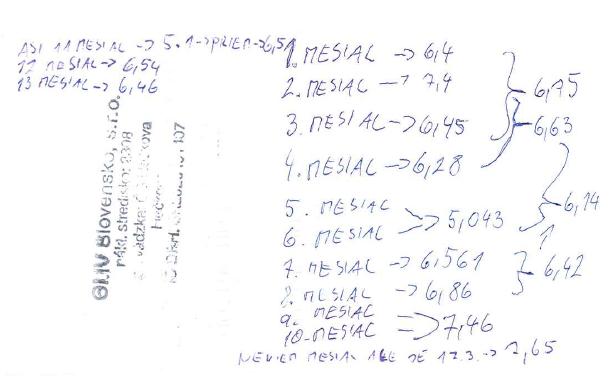 ASI 11 MESIAC -> 5.1->PRIEM->6,51
12 MESIAC -> 6,54
13 MESIAC -> 6,46
1. MESIAC -> 6,4
2. MESIAC -> 7,4
3. MESIAC -> 6,45
4. MESIAC -> 6,28
6,75
6,63
5. MESIAC
6. MESIAC
=> 5,043
6,14
7. MESIAC -> 6,561
8. MESIAC -> 6,86
6,42
9. MESIAC
10. MESIAC
=> 7,46
NEVIEM MESIAC ALE DE 17.3. -> 7,65
OMV Slovensko, s.r.o.
nákl. stredisko: 2308